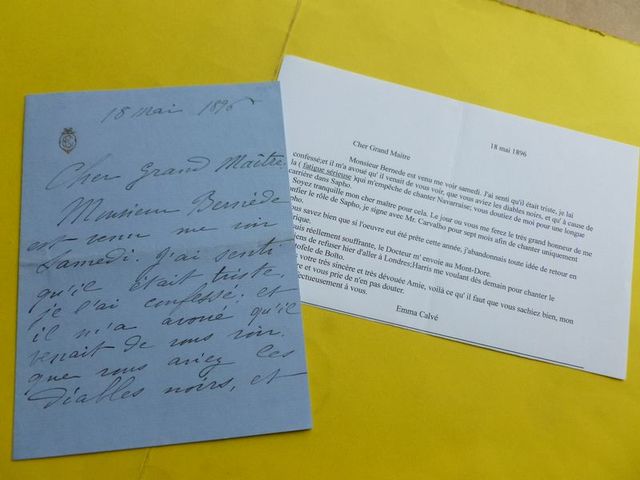 18 mai 1896
Cher Grand Maître,
Monsieur Bernède
est venu me voir
Samedi. J'ai senti
qu'il était triste,
je l'ai confessé; et
il m'a avoué qu'il
venait de vous voir.
que vous aviez les
diables noirs, et
18 mai 1896
Cher Grand Maitre
Monsieur Bernede est venu me voir samedi. J'ai senti qu'il était triste, je lai
confessé;et il m'a avoué qu'il venait de vous voir, que vous aviez les diables noirs, et qu'à cause de
la ( fatigue sérieuse )qui m'empêche de chanter Navarraise; vous doutiez de moi pour une longue
carrière dans Sapho.
Soyez tranquille mon cher maître pour cela. Le jour ou vous me ferez le très grand honneur de me
confier le rôle de Sapho, je signe avec Mr. Carvalho pour sept mois afin de chanter uniquement
pho.
us savez bien que si l'oeuvre eut été prête cette année, j'abandonnais toute idée de retour en
rique.
uis réellement souffrante, le Docteur m' envoie au Mont-Dore.
ens de refuser hier d'aller à Londres;Harris me voulant dès demain pour chanter le
tofele de Boïto.
votre très sincère et très dévouée Amie, voilà ce qu' il faut que vous sachiez bien, mon
re et vous prie de n'en pas douter.
ctueusement à vous.
Emma Calvé